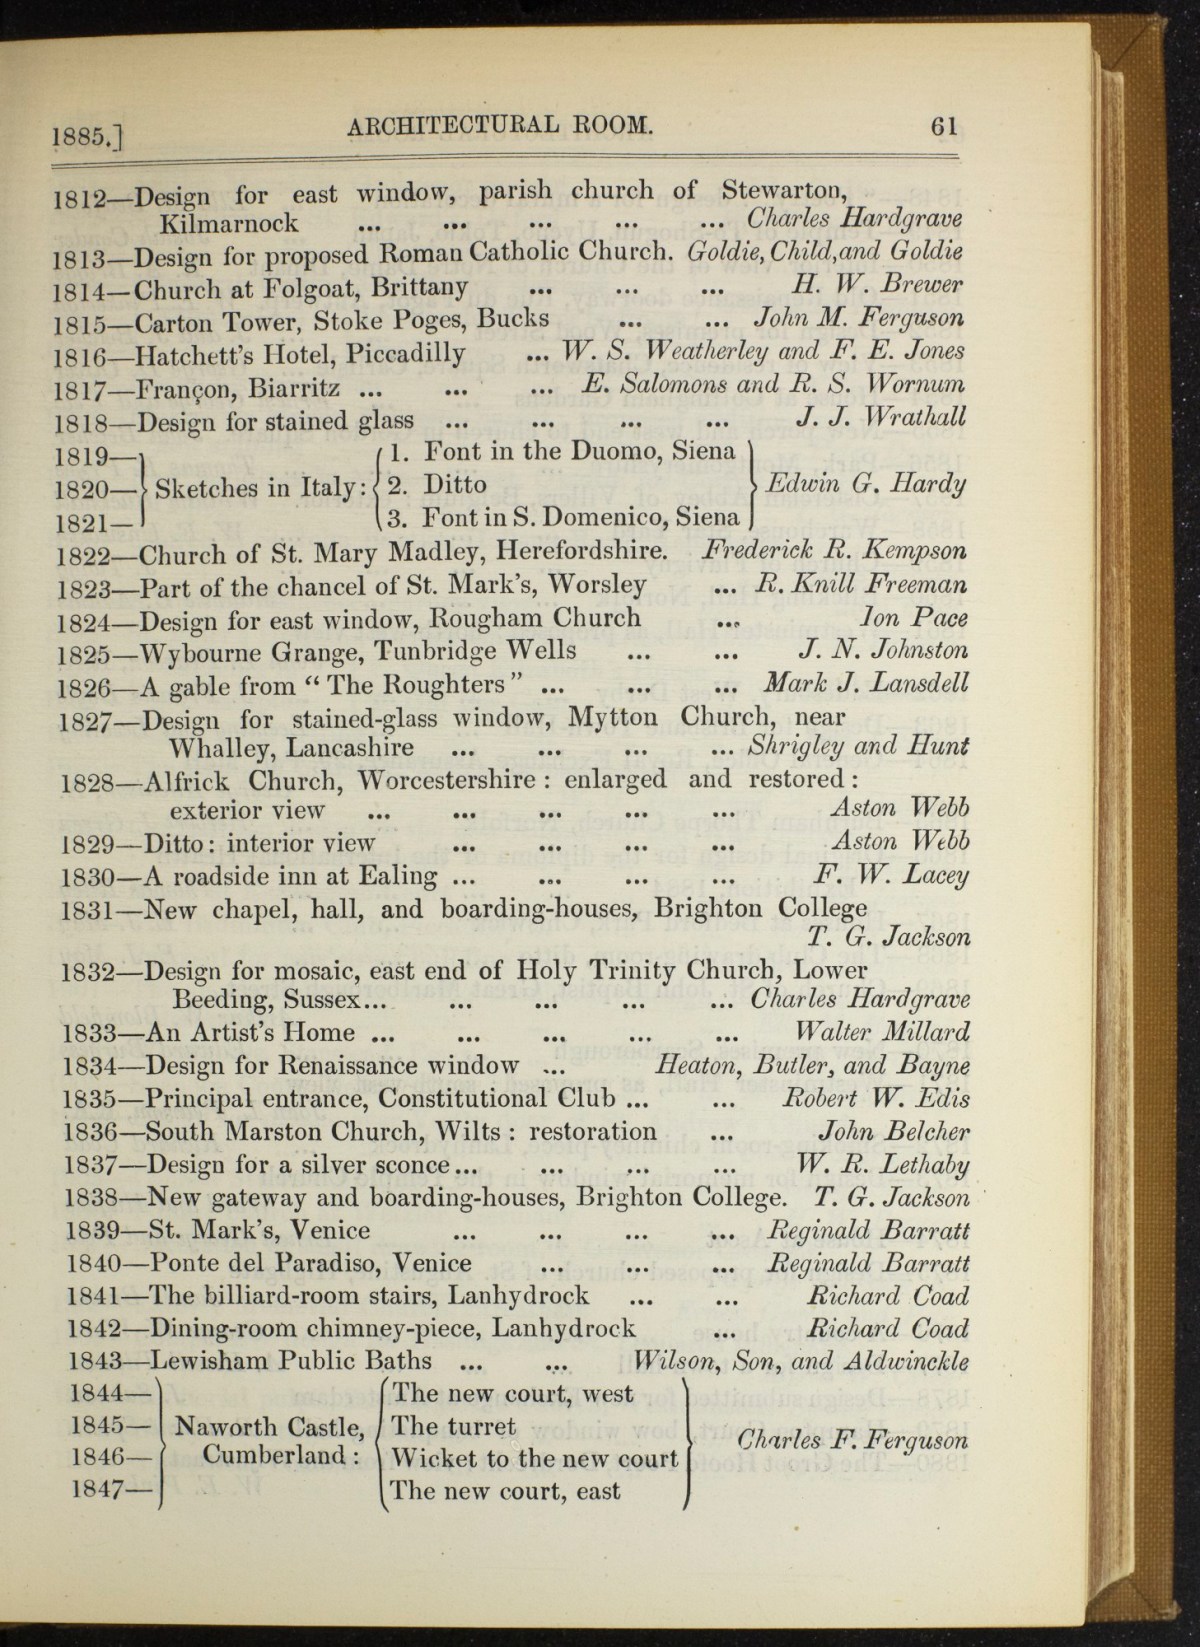 1885.] ARCHITECTURAL ROOM. 61
1812—Design for east window, parish church of Stewarton,
Kilmarnock ... ... ... ... ... Charles Hardgrave
1813—Design for proposed Roman Catholic Church. Goldie, Child, and Goldie
1814—Church at Folgoat, Brittany ... ... ... H. W. Brewer
1815—Carton Tower, Stoke Poges, Bucks ... ... John M. Ferguson
1816—Hatchett's Hotel, Piccadilly ... W. S. Weatherley and F. E. Jones
1817—Françon, Biarritz ... ... ... E. Salomons and R. S. Wornum
1818—Design for stained glass ... ... ... ... J. J. Wrathall
1819— 1. Font in the Duomo, Siena
1820— Sketches in Italy: 2. Ditto Edwin G. Hardy
1821— 3. Font in S. Domenico, Siena
1822—Church of St. Mary Madley, Herefordshire. Frederick R. Kempson
1823—Part of the chancel of St. Mark's, Worsley ... R. Knill Freeman
1824—Design for east window, Rougham Church ... Ion Pace
1825—Wybourne Grange, Tunbridge Wells ... ... J. N. Johnston
1826—A gable from “ The Roughters ” ... ... ... Mark J. Lansdell
1827—Design for stained-glass window, Mytton Church, near
Whalley, Lancashire ... ... ... ... Shrigley and Hunt
1828—Alfrick Church, Worcestershire : enlarged and restored :
exterior view ... ... ... ... ... Aston Webb
1829—Ditto : interior view ... ... ... ... Aston Webb
1830—A roadside inn at Ealing ... ... ... ... F. W. Lacey
1831—New chapel, hall, and boarding-houses, Brighton College
T. G. Jackson
1832—Design for mosaic, east end of Holy Trinity Church, Lower
Beeding, Sussex... ... ... ... ... Charles Hardgrave
1833—An Artist's Home ... ... ... ... ... Walter Millard
1834—Design for Renaissance window ... Heaton, Butler, and Bayne
1835—Principal entrance, Constitutional Club ... ... Robert W. Edis
1836—South Marston Church, Wilts : restoration ... John Belcher
1837—Design for a silver sconce... ... ... ... W. R. Lethaby
1838—New gateway and boarding-houses, Brighton College. T. G. Jackson
1839—St. Mark's, Venice ... ... ... ... Reginald Barratt
1840—Ponte del Paradiso, Venice ... ... ... Reginald Barratt
1841—The billiard-room stairs, Lanhydrock ... ... Richard Coad
1842—Dining-room chimney-piece, Lanhydrock ... Richard Coad
1843—Lewisham Public Baths ... ... Wilson, Son, and Aldwinckle
1844— The new court, west
1845— Naworth Castle, The turret
Charles F. Ferguson
1846— Cumberland : Wicket to the new court
1847— The new court, east